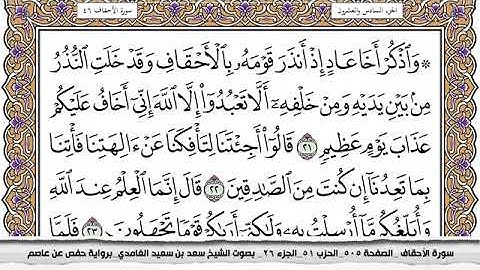 سورة الأحقاف ٤٦
الجزء السادس والعشرون
۞ وَٱذۡكُرۡ أَخَا عَادٍ إِذۡ أَنذَرَ قَوۡمَهُۥ بِٱلۡأَحۡقَافِ وَقَدۡ خَلَتِ ٱلنُّذُرُ
مِنۢ بَيۡنِ يَدَيۡهِ وَمِنۡ خَلۡفِهِۦٓ أَلَّا تَعۡبُدُوٓاْ إِلَّا ٱللَّهَ إِنِّيٓ أَخَافُ عَلَيۡكُمۡ
عَذَابَ يَوۡمٍ عَظِيمٖ ٢١ قَالُوٓاْ أَجِئۡتَنَا لِتَأۡفِكَنَا عَنۡ ءَالِهَتِنَا فَأۡتِنَا
بِمَا تَعِدُنَآ إِن كُنتَ مِنَ ٱلصَّٰدِقِينَ ٢٢ قَالَ إِنَّمَا ٱلۡعِلۡمُ عِندَ ٱللَّهِ
وَأُبَلِّغُكُم مَّآ أُرۡسِلۡتُ بِهِۦ وَلَٰكِنِّيٓ أَرَىٰكُمۡ قَوۡمٗا تَجۡهَلُونَ ٢٣ فَلَمَّا
سورة الأحقاف _ الصفحة ٥٠٥ _ الحزب ٥١ _ الجزء ٢٦ _ بصوت الشيخ سعد بن سعيد الغامدي _ برواية حفص عن عاصم